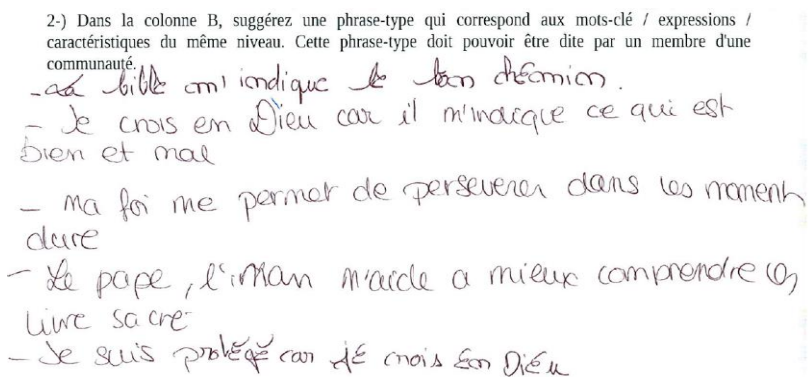 2-) Dans la colonne B, suggérez une phrase-type qui correspond aux mots-clé / expressions /
caractéristiques du même niveau. Cette phrase-type doit pouvoir être dite par un membre d'une
communauté.
- La bible m'indique le bon chemin.
- Je crois en Dieu car il m'indique ce qui est
bien et mal
- Ma foi me permet de perseverer dans les moments
dure
- Le pape, l'iman m'aide a mieux comprendre
livre sacré
- Je suis protégé car je crois en Dieu